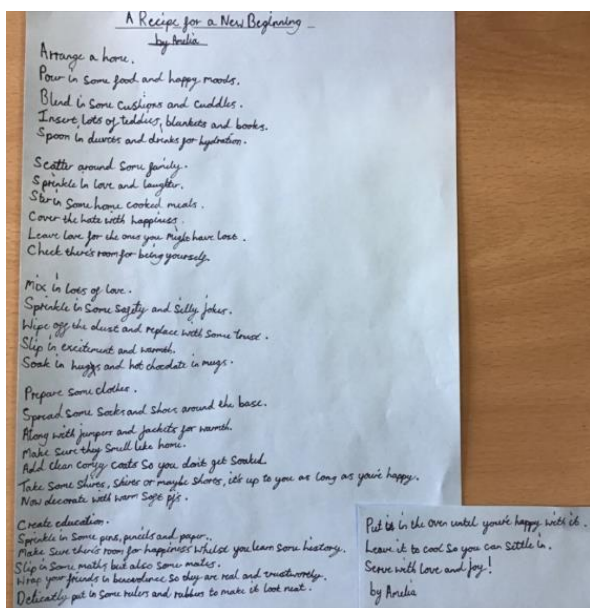 A Recipe for a New Beginning
by Amelia
Arrange a home.
Pour in some food and happy moods.
Blend in some cushions and cuddles.
Insert lots of teddies, blankets and books.
Spoon in duvets and drinks for hydration.
Scatter around some family.
Sprinkle in love and laughter.
Stir in some home cooked meals.
Cover the hate with happiness.
Leave love for the ones you might have lost.
Check there's room for being yourself.
Mix in lots of love.
Sprinkle in some safety and silly jokes.
Wipe off the dust and replace with some trust.
Slip in excitement and warmth.
Soak in huggs and hot chocolate in mugs.
Prepare some clothes.
Spread some socks and shoes around the base.
Along with jumpers and jackets for warmth.
Make sure they smell like home.
Add clean comfy coats so you don't get soaked.
Take some shirts, skirts or maybe shorts, it's up to you as long as you're happy.
Now decorate with warm soft pj's.
Create education.
Sprinkle in some pens, pencils and paper.
Make sure there's room for happiness whilst you learn some history.
Slip in some maths but also some mates.
Wrap your friends in benevolence so they are real and trustworthy.
Delicatly put in some rulers and rubbers to make it look neat.
Put in the oven until you're happy with it.
Leave it to cool so you can settle in.
Serve with love and joy!
by Amelia